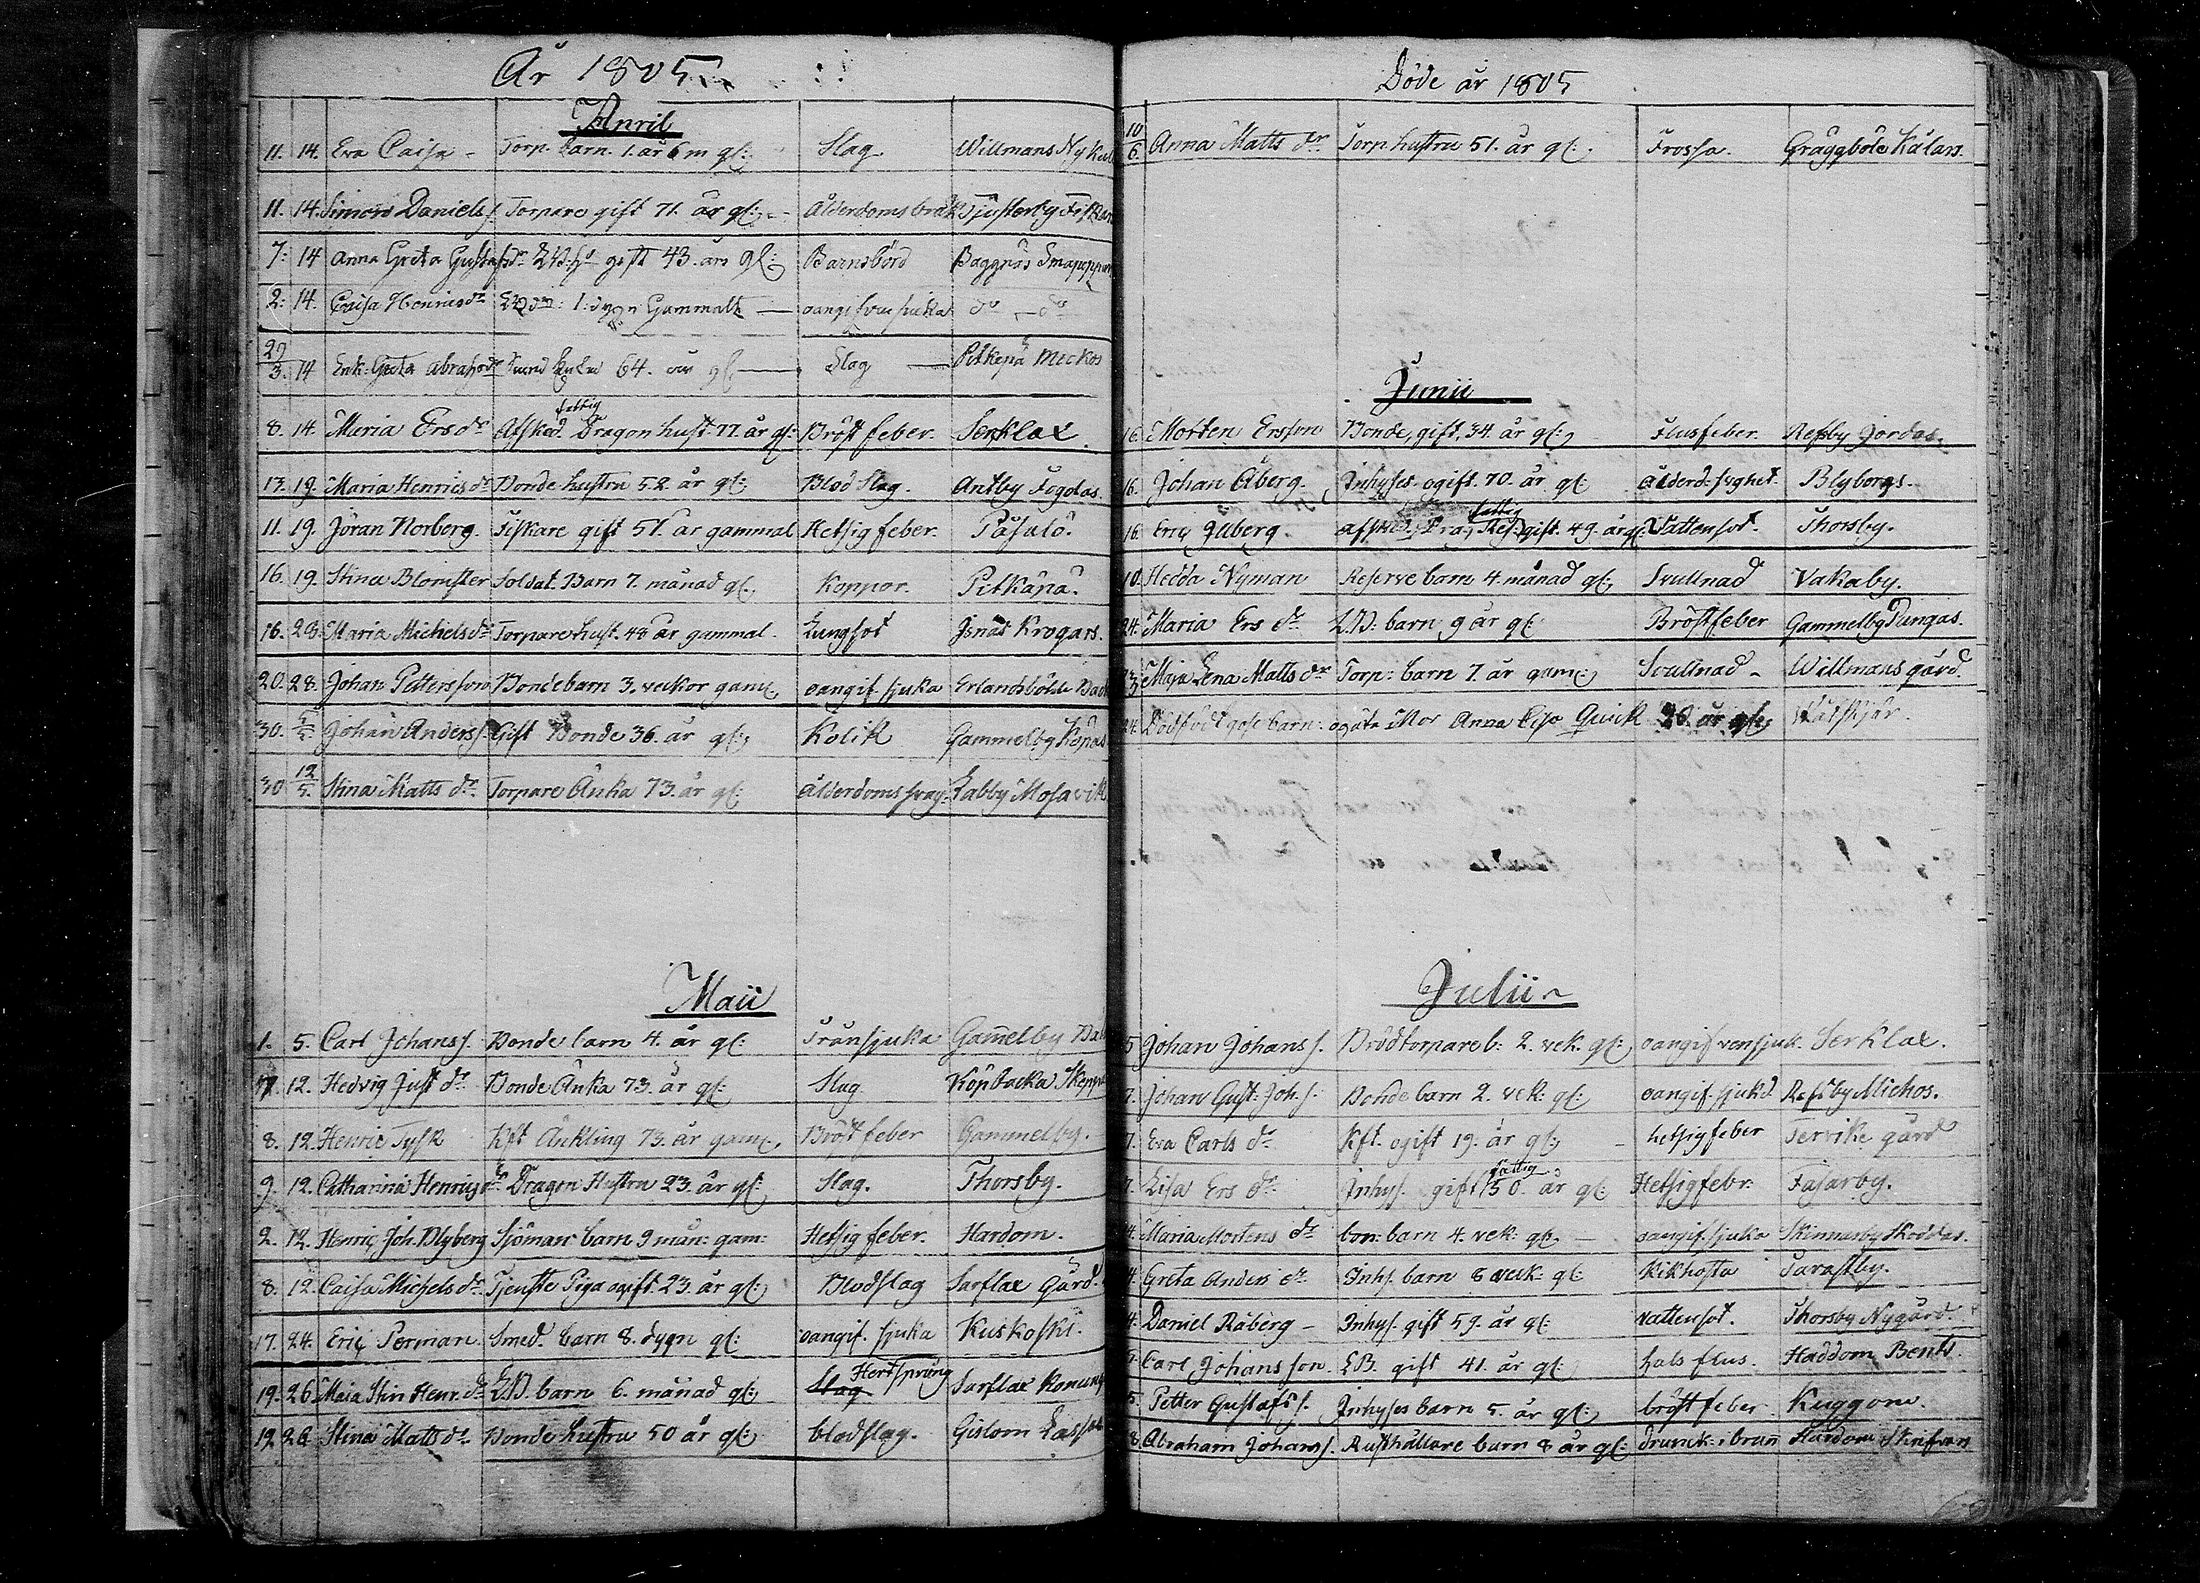 År 1805.
April
11. 14. Eva Caisa - Torp. barn. 1. år 6 m gl: Slag Willmans Ny
11. 14. Simon Daniels s. Torpare gift 71. år gl: - Ålderdoms bräk Tjusterby
7: 14 Anna Greta Gustafsdr gift 43. års gl: Barnsbörd Baggnäs
2: 14. Caisa Henricsdr 1: dygn Gammalt - oangifven siuka do - do
29/3. 14 Enk: Greta Abrahsdr 64. år gl - Slag - Pitkepä Mickos
fattig
8. 14. Maria Ersdr Afsked. Dragon hust. 77. år gl: Bröst feber. Serklax
17. 19. Maria Henricsdr Bonde hustru 52. år gl: Blod Slag. Antby Fogdas
11. 19. Jöran Norberg. Fiskare gift 51. år gammal Hetsig feber. Påsalö.
16. 19. Stina Blomster Soldat. Barn 7. månad gl. Koppor. Pitkäpä.
16. 28. Maria Michelsdr Torpare hust. 48 år gammal. Lungsot Isnäs Krogars.
20. 28. Johan Pettersson Bondebarn 3. veckor gam: oangif. sjuka Erlandsböle
30. Johan Anderss. Gift Bonde 36. år gl: Kolik Gammelby
30 12/5. Stina Matts dr Torpare Änka 73. år gl: Ålderdoms svag: Labby Mosavik
Maii
1. 5. Carl Johans s. Bonde barn 4. år gl: Tränsjuka Gamelby
12. Hedvig Just dr Bonde Änka 73. år gl: Slag Köpbacka
8. 12. Henric Tysk Kft Änkling 73. år gam: Bröst feber Gammelby.
9. 12. Catharina Henricsdr Dragon Hustru 23. år gl: Slag. Thorsby.
2. 12. Henric Joh. Blyberg Sjöman barn 9 mån: gam: Hetsig feber. Hardom.
8. 12. Caisa Michels dr Tjenste Piga ogift. 23. år gl: Blodslag Sarflax Gård.
17. 24. Eric Perman Smed. barn 8. dygn gl: oangif. sjuka Kuskoski.
19. 26 Maia Stin Henr. dr LB. barn 6. månad gl: Slag Hertsprång Sarflax
19. 26 Stina Matts dr Bonde hustru 50 år gl: blodslag. Gislom
Döde år 1805
10/6 Anna Matts dr Torp hustru 51. år gl: Frossa. Gräggböle Kålars.
Junii
16. Morten Ersson Bonde, gift, 34. år gl: Flusfeber. Refsby Jordas.
16. Johan Åberg. Inhyses. ogift. 70. år gl: ålderd: svaghet. Blyborgs.
fattig
16. Eric gift. 49. år gl: Vattensot. Thorsby.
10. Hedda Nyman Reserve barn 4. månad gl: Svullnad Vakaby.
24. Maria Ers dr LB: barn 9 år gl: Bröstfeber Gammelby Pungas.
Maja Lena Matts dr Torp: barn 7. år gam: Svullnad - Willmans gård.
24. Dödfödt gose barn: ogäta Mor Anna Lisa Quick år gl:
Julii
5 Johan Johans s. Brödtorpare b: 2. vek. gl: oangifven sjuk. Serklax.
7. Johan Gust: Joh. s. Bonde barn 2. vek: gl: oangif. sjukd. Refsby Michos.
7. Eva Carls dr Kft. ogift 19. år gl: - hetsigfeber Tervike gård
fattig
7. Lisa Ers dr Inhys. gift 50. år gl: Hetsigfebr: Fasarby.
4. Maria Mortens dr bon: barn 4. vek: gl: - oangif. sjuka Skinnarby Skoddas.
4. Greta Anders dr Inhs. barn 8 veck: gl: Kikhosta Tavastby.
4. Daniel Råberg - Inhys. gift 59. år gl: vattensot. Thorsby Nygård.
Carl Johansson. LB. gift 41. år gl: hals flus. Haddom Bents.
5. Petter Gustafs s. Inhyses barn 5. år gl: bröst feber Kuggom.
8. Abraham Johans s. Rusthållare barn 8 år gl: drunck. i brunn Hardom